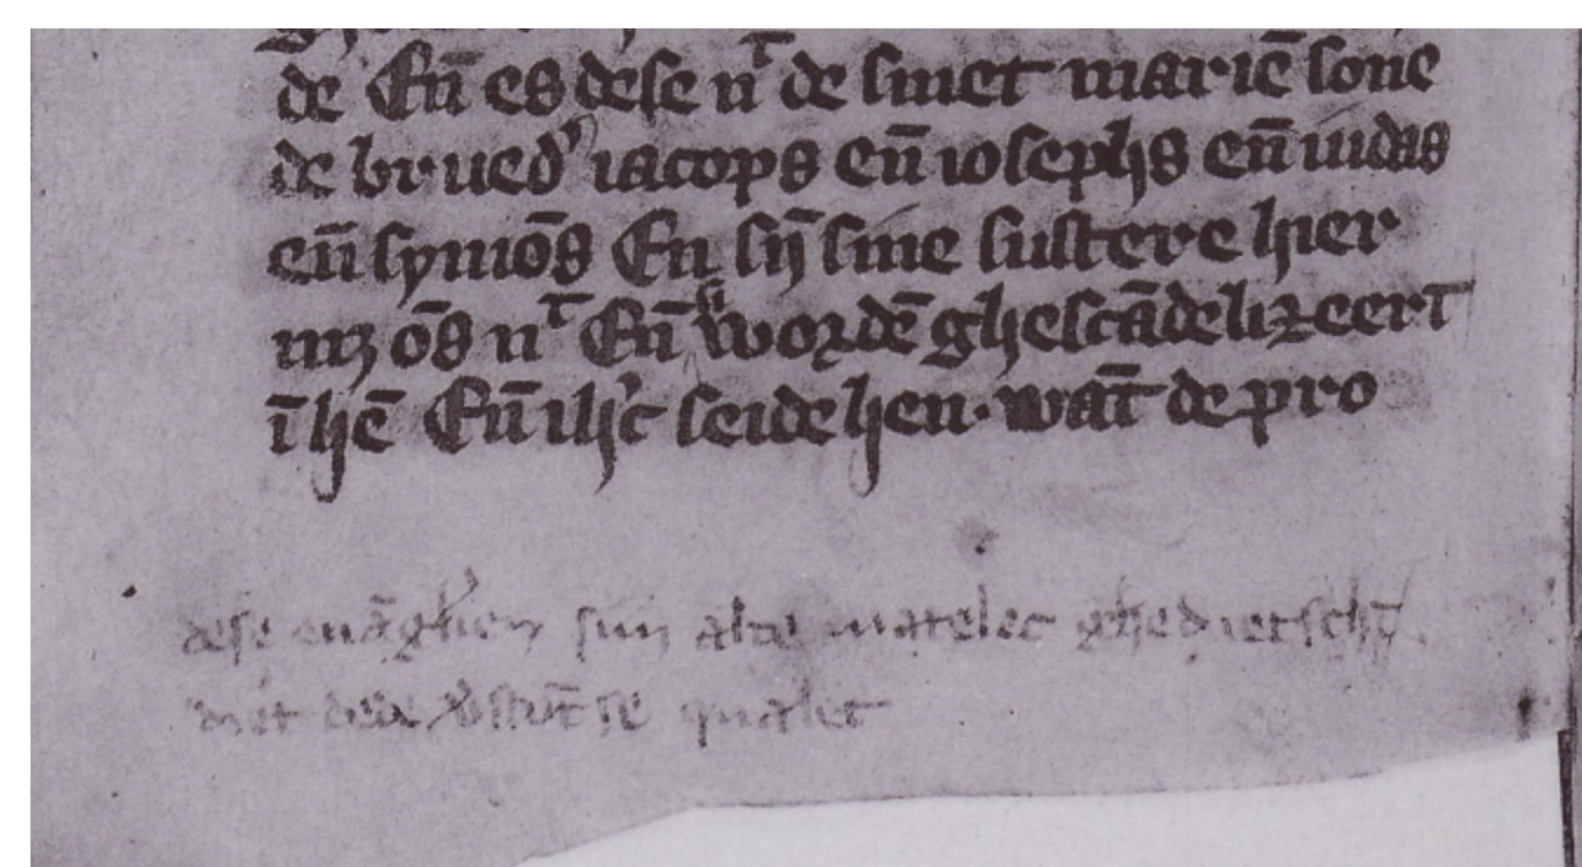 de En̄ es dese nͭ de smet mariē sone
de brued' iacops en̄ iosephs en̄ iudas
en̄ symōs En sij̄ sine sustere hier
mꝫ ōs nͭ En̄ si wordē ghescādelizeert
ī hē En̄ ih'c seide hen · wāt de pro
dese euāg'lien siin alte matelec ghedietscht
diet dede v'stūt se qualec